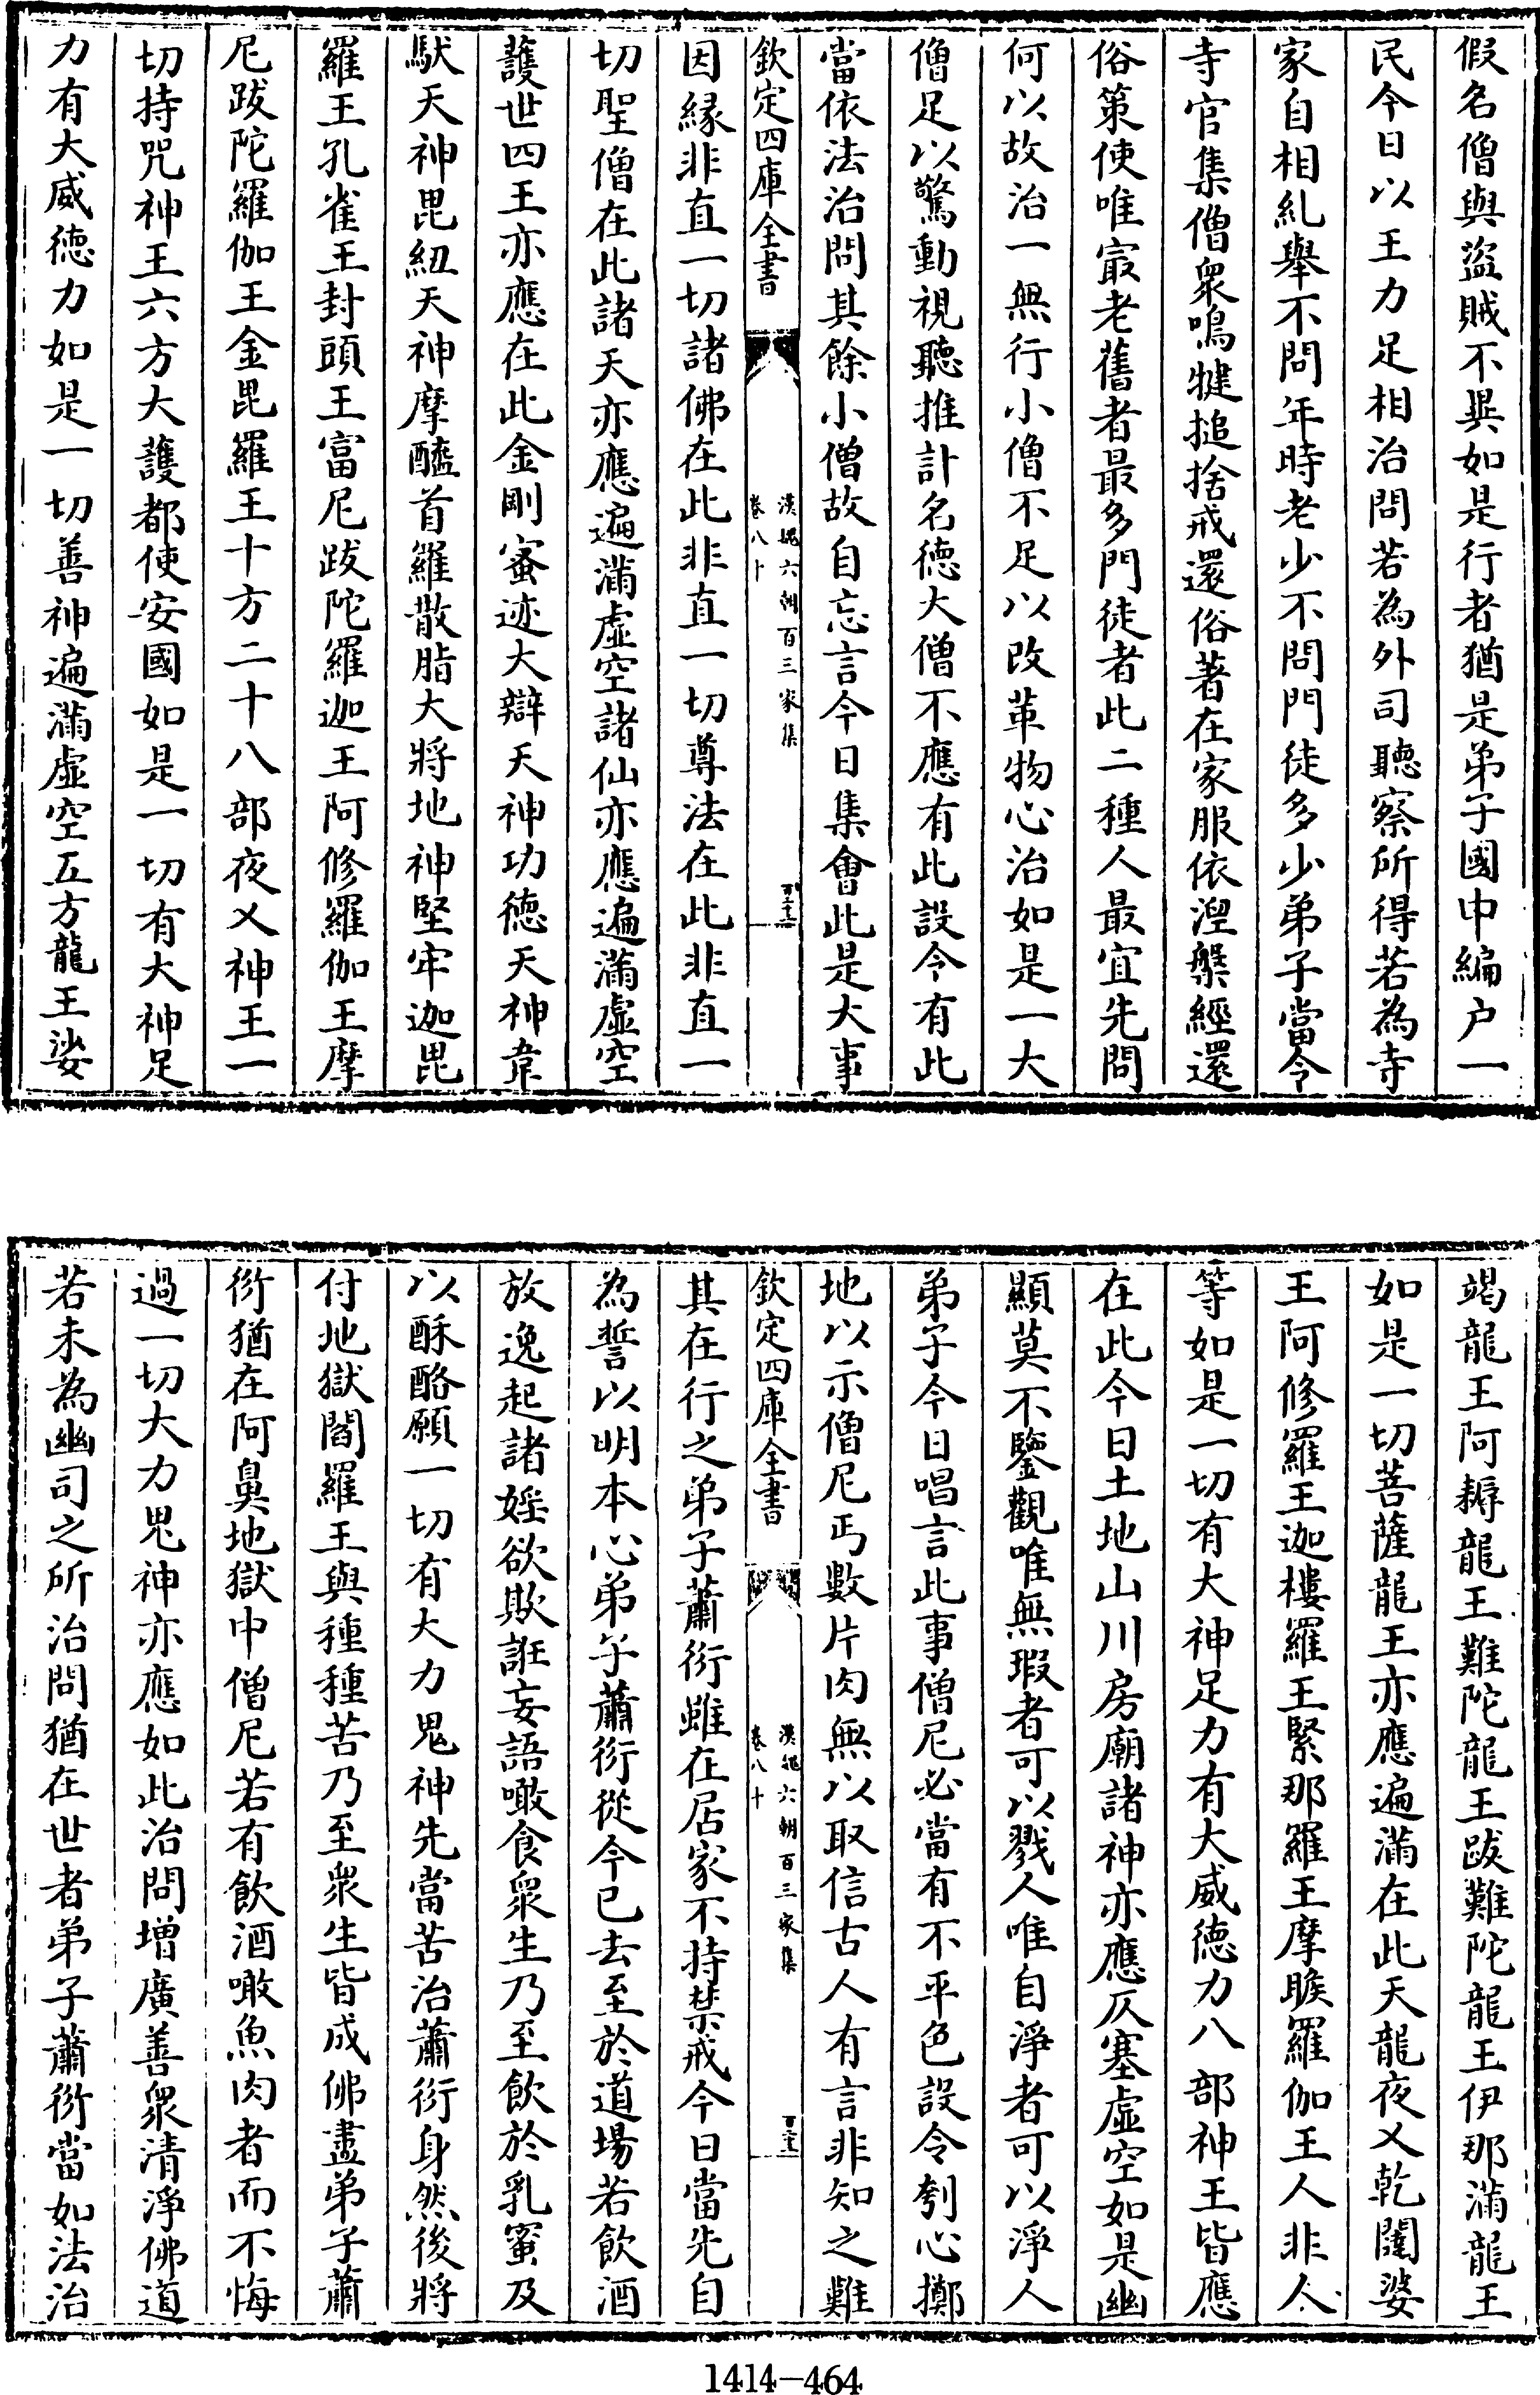 假名僧與盜賊不異如是行者猶是弟子國中編户一
民今日以王力足相治問若為外司聽察所得若為寺
家自相糺舉不問年時老少不問門徒多少弟子當令
寺官集僧衆鳴犍搥捨戒還俗著在家服依湼槃經還
俗策使唯冣老舊者最多門徒者此二種人最宜先問
何以故治一無行小僧不足以改革物心治如是一大
僧足以驚動視聽推計名徳大僧不應有此設令有此
當依法治問其餘小僧故自忘言今日集會此是大事
欽定四庫全書
漢魏六朝百三家集
卷八十
因緣非直一切諸佛在此非直一切尊法在此非直一
切聖僧在此諸天亦應遍滿虛空諸仙亦應遍滿虛空
護世四王亦應在此金剛蜜迹大辯天神功徳天神韋
馱天神毘紐天神摩醯首羅散脂大將地神堅牢迦毘
羅王孔雀王封頭王富尼跋陀羅迦王阿修羅伽王摩
尼跋陀羅伽王金毘羅王十方二十八部夜乂神王一
切持咒神王六方大護都使安國如是一切有大神足
力有大威徳力如是一切善神遍滿虛空五方龍王娑
竭龍王阿耨龍王難陀龍王跋難陀龍王伊那滿龍王
如是一切菩薩龍王亦應遍滿在此天龍夜乂乾闥婆
王阿修羅王迦樓羅王緊那羅王摩睺羅伽王人非人
等如是一切有大神足力有大威徳力八部神王皆應
在此今日土地山川房廟諸神亦應仄塞虛空如是幽
顯莫不鑒觀唯無瑕者可以戮人唯自淨者可以淨人
弟子今日唱言此事僧尼必當有不平色設令刳心擲
地以示僧尼丐數片肉無以取信古人有言非知之難
欽定四庫全書
漢魏六朝百三家集
卷八十
其在行之弟子蕭衍雖在居家不持禁戒今日當先自
為誓以明本心弟子蕭衍從今已去至於道場若飲酒
放逸起諸婬欲欺誑妄語噉食衆生乃至飲於乳蜜及
以酥酪願一切有大力鬼神先當苦治蕭衍身然後將
付地獄閻羅王與種種苦乃至衆生皆成佛盡弟子蕭
衍猶在阿鼻地獄中僧尼若有飲酒噉魚肉者而不悔
過一切大力鬼神亦應如此治問增廣善衆清淨佛道
若未為幽司之所治問猶在世者弟子蕭衍當如法治
1414-464